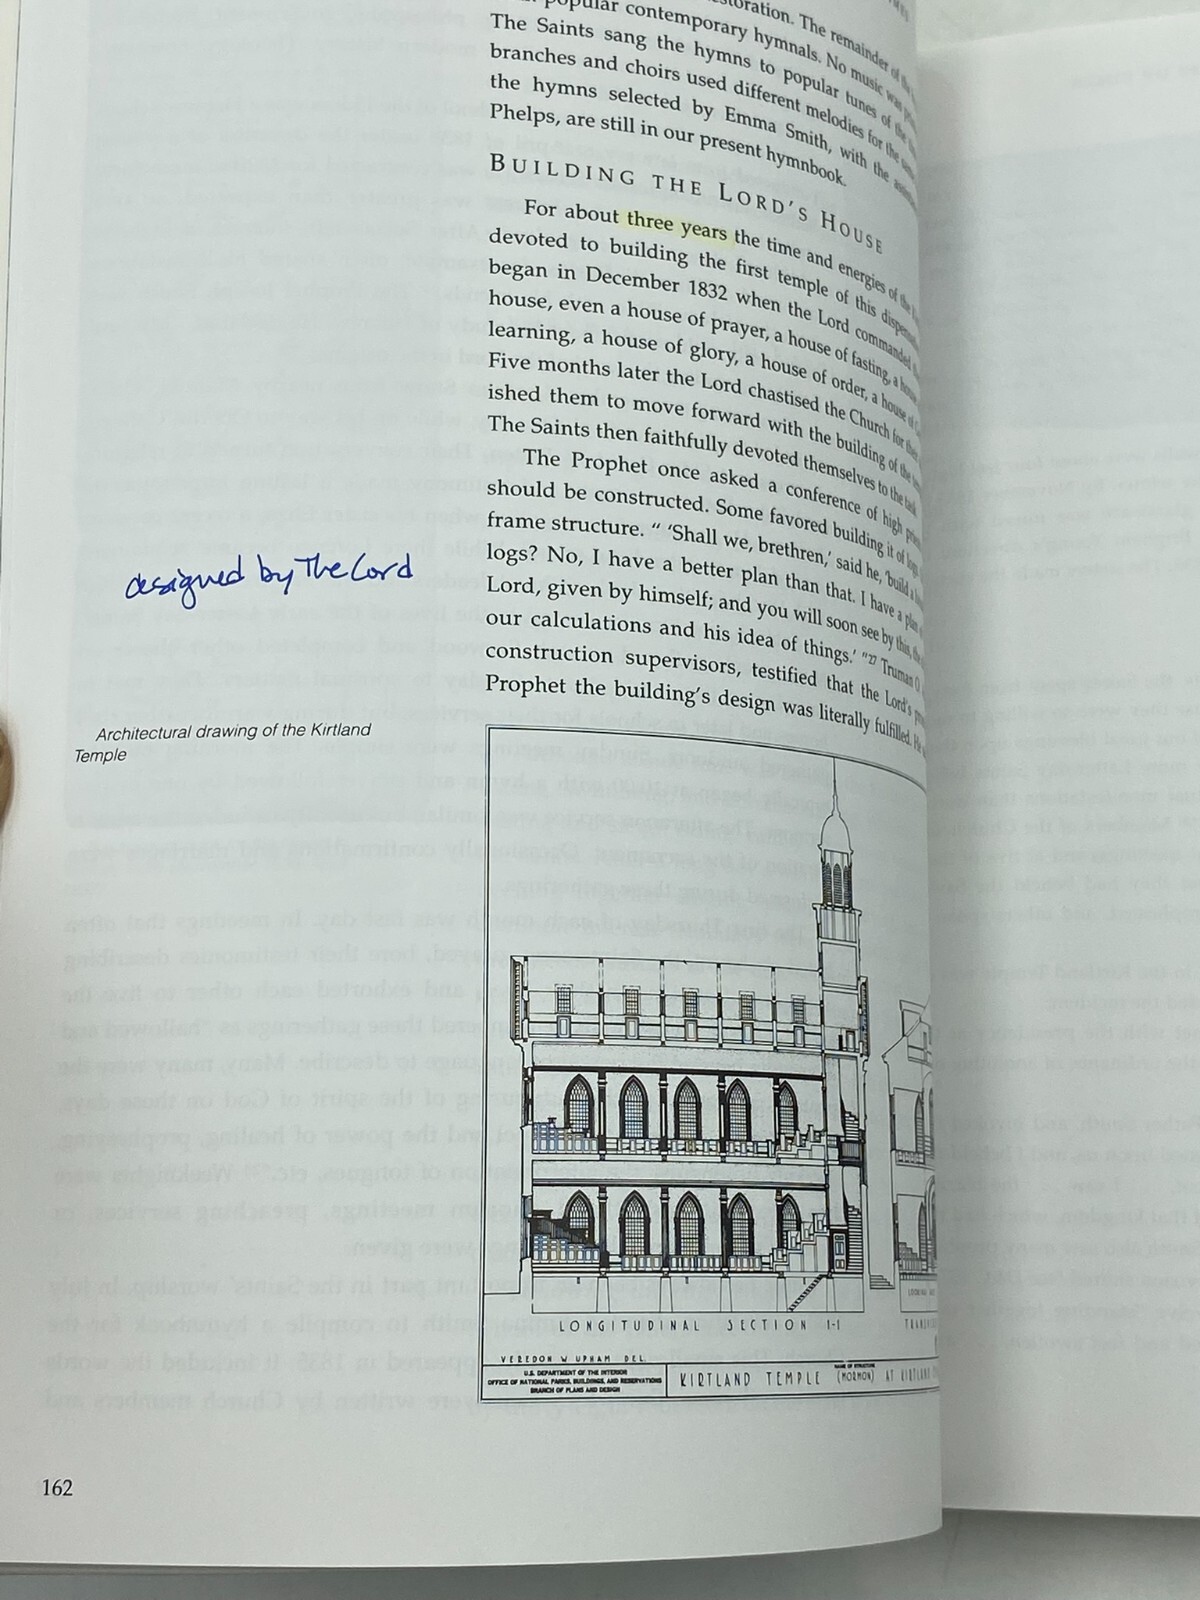 storation. The remainder of the
popular contemporary hymnals. No music was
The Saints sang the hymns to popular tunes of the
branches and choirs used different melodies for the same
the hymns selected by Emma Smith, with the
Phelps, are still in our present hymnbook.
BUILDING THE LORD'S HOUSE
For about three years the time and energies of the
devoted to building the first temple of this
began in December 1832 when the Lord commanded
house, even a house of prayer, a house of fasting, a house
learning, a house of glory, a house of order, a house of
Five months later the Lord chastised the Church for their
ished them to move forward with the building of the
The Saints then faithfully devoted themselves to the task
The Prophet once asked a conference of high
should be constructed. Some favored building it of logs
frame structure. “ ‘Shall we, brethren,’ said he, ‘build a
logs? No, I have a better plan than that. I have a plan
Lord, given by himself; and you will soon see by this, the
our calculations and his idea of things.’ ”27 Truman O
construction supervisors, testified that the Lord's
Prophet the building's design was literally fulfilled. He
designed by The Lord
Architectural drawing of the Kirtland
Temple
LONGITUDINAL SECTION 1-1
VEREDON W UPHAM DEL.
U.S. DEPARTMENT OF THE INTERIOR
OFFICE OF NATIONAL PARKS, BUILDINGS, AND RESERVATIONS
BRANCH OF PLANS AND DESIGN
NAME OF STRUCTURE
KIRTLAND TEMPLE (MORMON) AT KIRTLAND
162